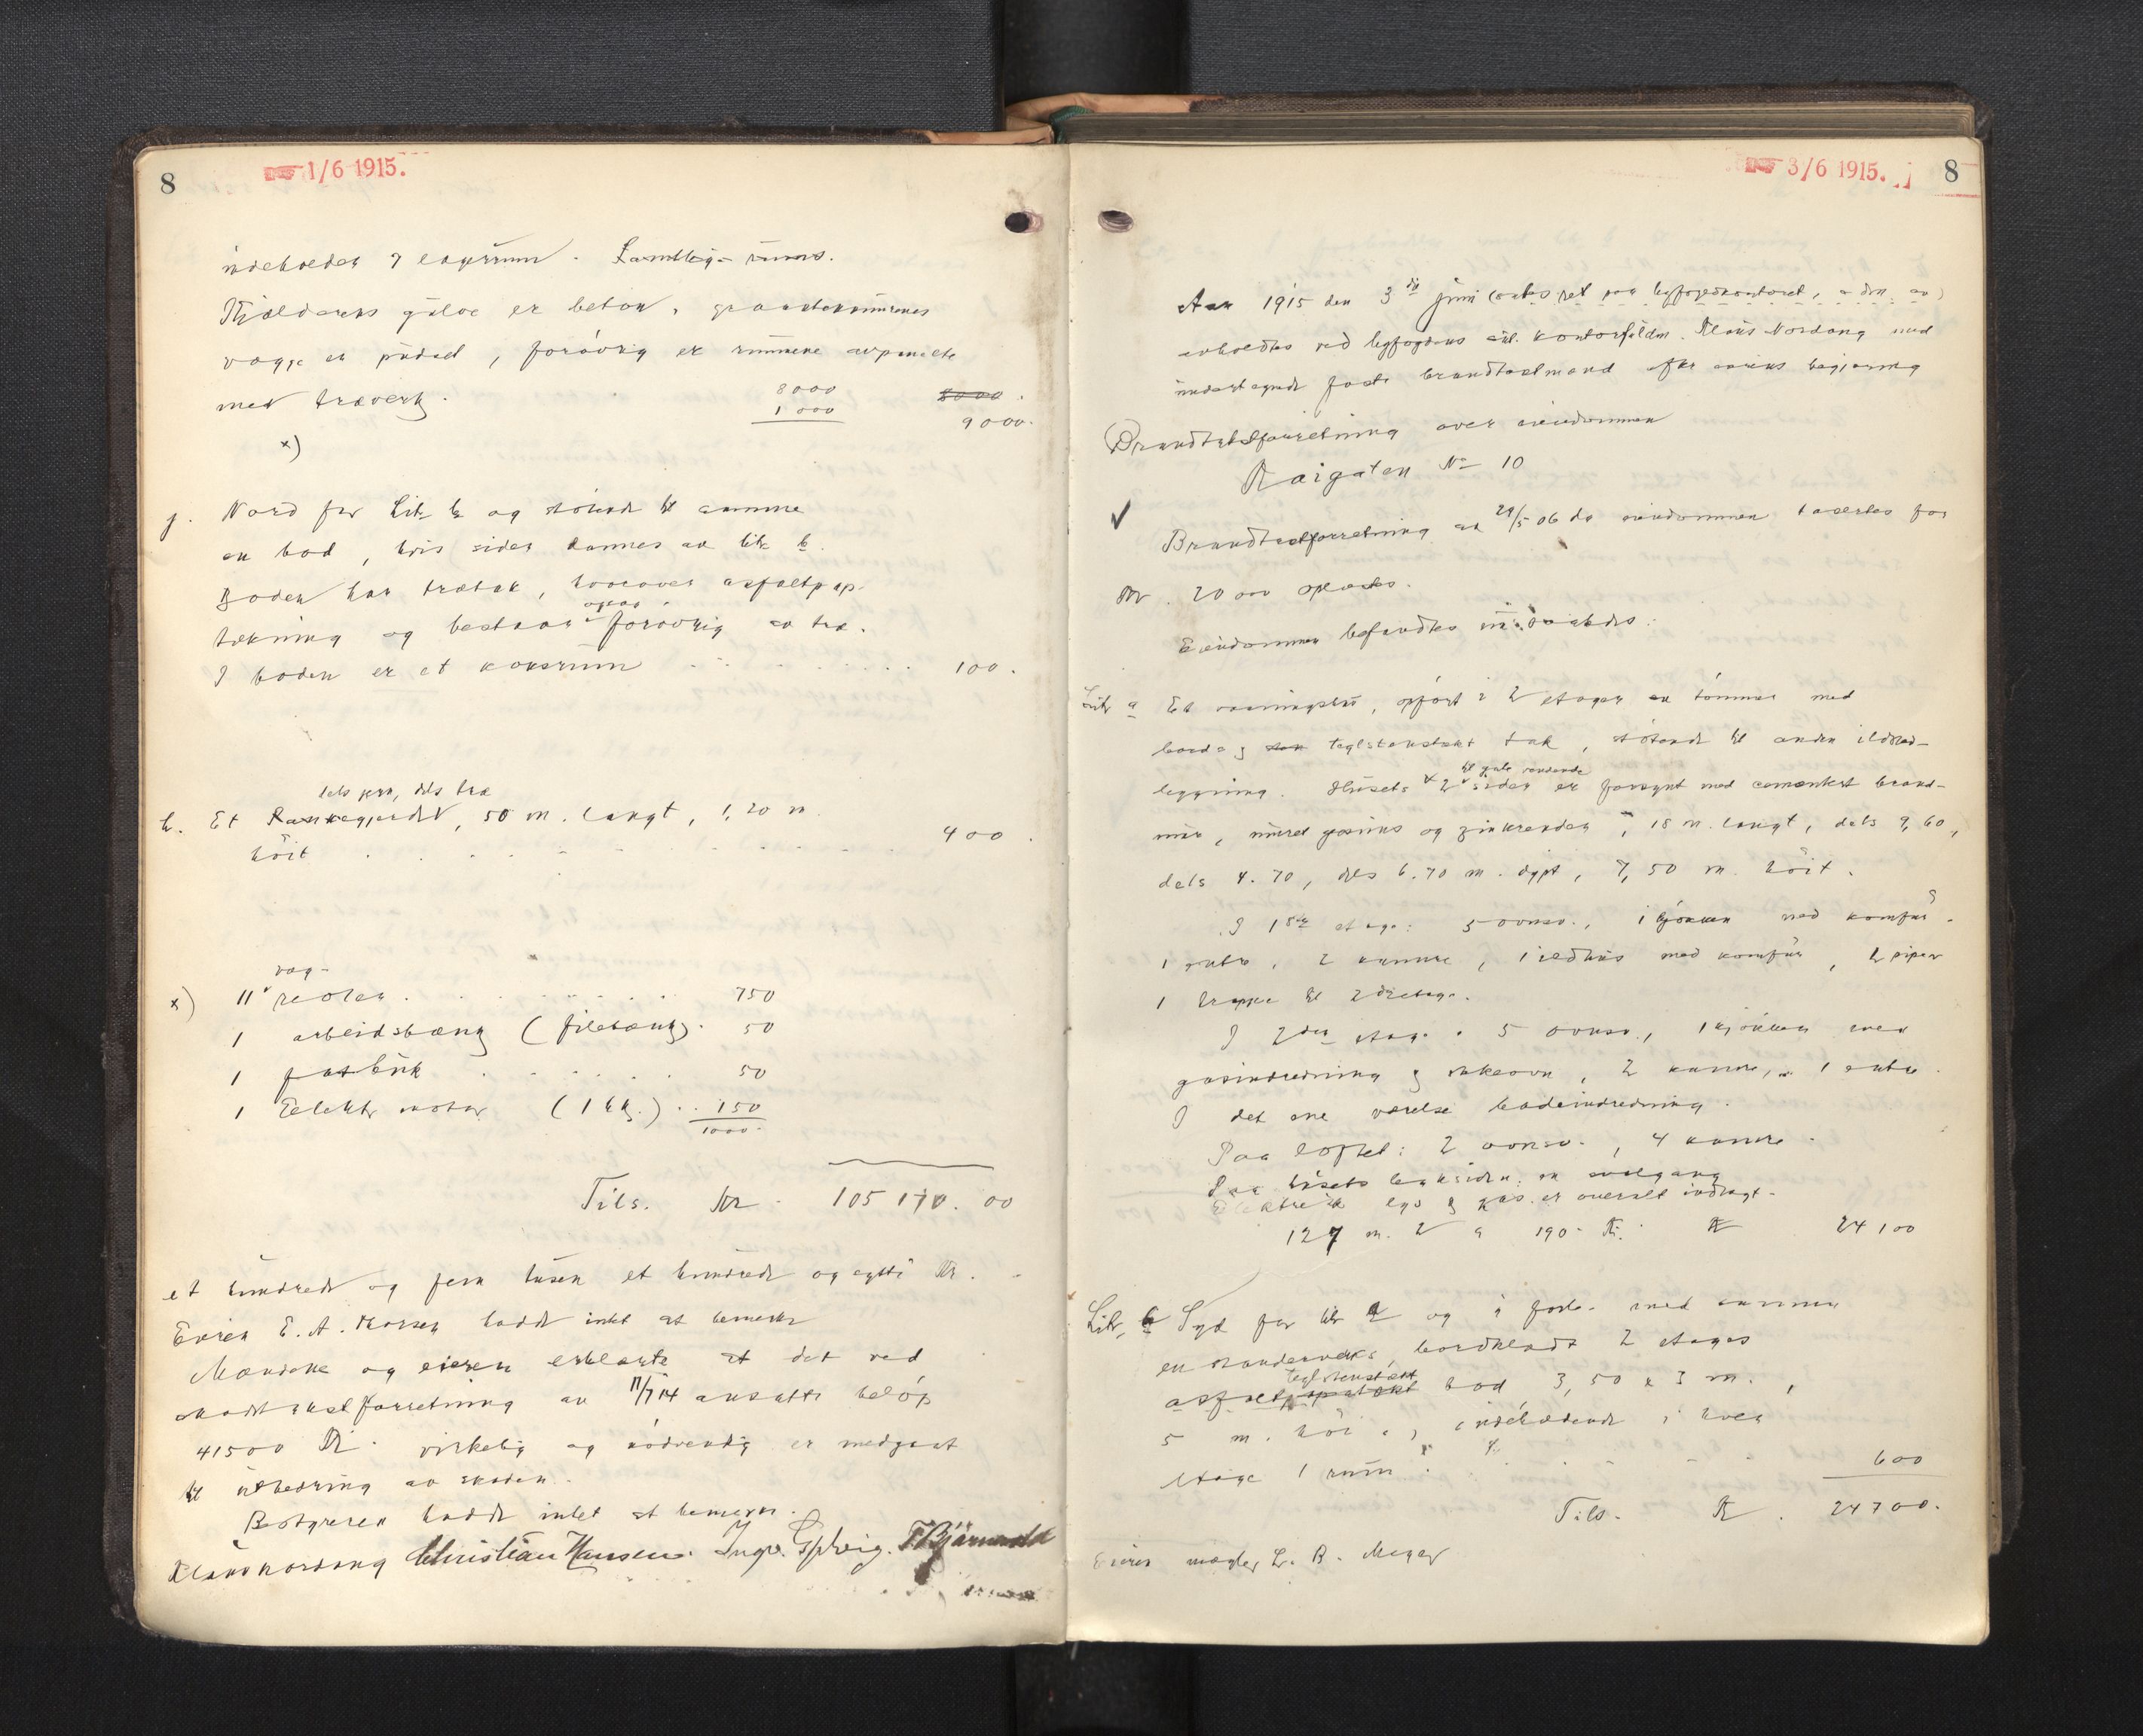 8
1/6 1915.
indeholder 7 lagerrum. Samtlige rums.
Kjelderens gulve er beton,
vægge er pudset, forøvrig er rummene avpanelte
med træverk.
8000
1000
8000.
9000.
x)
g. Nord for Litr b og støtende til samme
en bod, hvis sider dannes av litr b.
Boden har trætak, hvorover asfaltpap-
tækning og bestaar forøvrig av træ.
I boden er et koksrum 100.
dels jern, dels træ
h. Et Stankegjerde, 50 m. langt, 1,20 m
höit 400.
væg-
x) 11 reoler 750
1 arbeidsbænk (filebænk). 50
1 50
1 Elektr motor (1 hk.) 150
1000.
Tils. Kr. 105 170.00
et hundrede og fem tusen et hundrede og sytti Kr.
Eieren E. A. hadde intet at bemerke
Mændene og eieren erklærte at det ved
skadetakstforretning av 11/7 14 ansatte beløp
41500 Kr. virkelig og nødvendig er medgaat
til utbedring av skaden.
Bestyreren hadde intet at bemerke.
Klaus Nordang Christian Hansen. Ingv.
3/6 1915. 8
Aar 1915 den 3 die juni
avholdtes ved byfogdens Klaus Nordang med
undertegnede faste brandtakstmænd efter eierens begjæring
Brandtakstforretning over eiendommen
Kaigaten No 10
✓ Brandtakstforretning av 29/5 06 da eiendommen taxertes for
Kr. 20000 oplæstes.
Eiendommen befandtes
Litr a Et vaaningshus, opført i 2 etager av tømmer med
bord og teglstenstækt tak, støtende til anden ildsted-
til gate vendende
bygning. Husets 2 sider er forsynt med cementert brand-
mur, muret gesims og zinkrender, 18 m. langt, dels 9,60,
dels 4.70, dels 6.70 m. dypt, 7,50 m. höit.
I 1ste etage: 5 ovnsv., 1 kjøkken med komfur.
1 entre, 2 kamre, 1 ildhus med komfur, 2 piper
1 trappe til 2den etage.
I 2den etage: 5 ovnsv., 1 kjøkken med
gasindredning og bakeovn, 2 kamre, 1 entre.
I det ene værelse badeindredning.
Paa loftet: 2 ovnsv., 4 kamre.
Paa husets bakside: en svalgang
Elektrisk lys og gas er overalt indlagt.
127 m. 2 a 190 Kr. Kr 24100
Litr. b Syd for litr a og i forb. med samme
en standerverks, bordklædt 2 etages
teglstenstækt
asfaltpaptækt bod 3,50 x 3 m.,
5 m. höi, indeholdende i hver
etage 1 rum. 600
Tils. Kr. 24700.
Eieren mægler L. B. Meyer